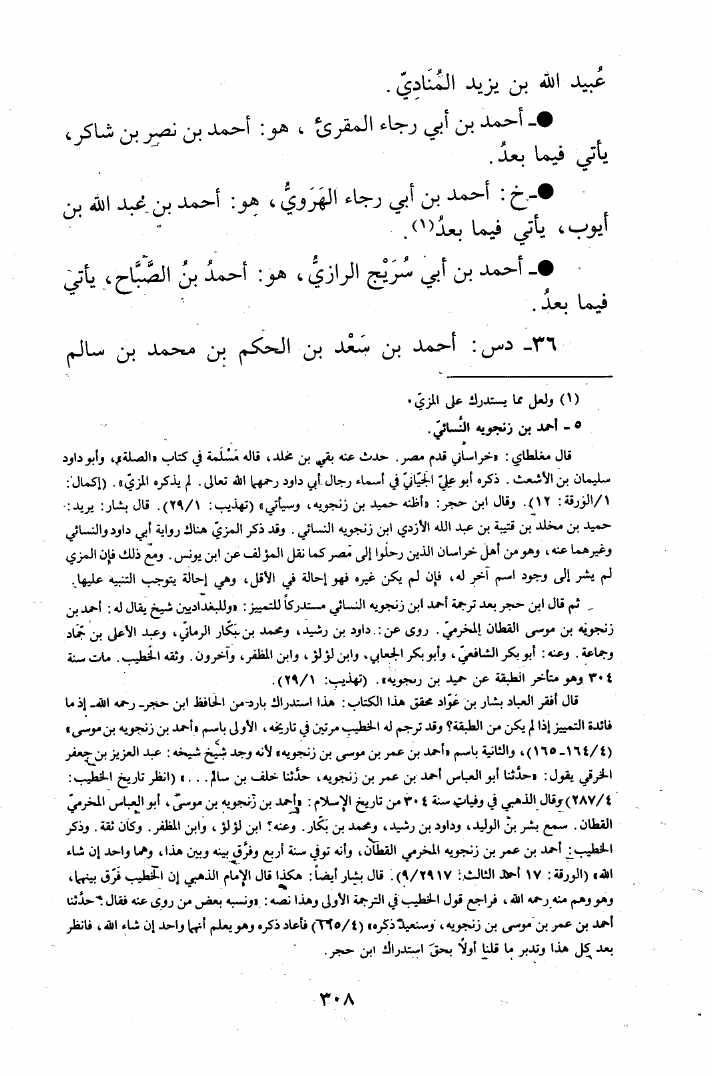 عُبيد الله بن يزيد المُنَادِيّ.
●ـ أحمد بن أبي رجاء المقرئ ، هو: أحمد بن نصر بن شاكر،
يأتي فيما بعدُ.
●ـ خ: أحمد بن أبي رجاء الهَرَويُّ، هو: أحمد بن عبد الله بن
أيوب، يأتي فيما بعدُ(١).
●ـ أحمد بن أبي سُرَيْج الرازيُّ، هو: أحمدُ بنُ الصَّبَّاح، يأتي
فيما بعدُ.
٣٦ـ دس: أحمد بن سَعْد بن الحكم بن محمد بن سالم
(١) ولعل مما يستدرك على المزيّ.
٥ - أحمد بن زنجويه النَّسائيّ.
قال مغلطاي: «خراساني قدم مصر. حدث عنه بقي بن مخلد، قاله مَسْلَمة في كتاب «الصلة»، وأبو داود
سليمان بن الأشعث. ذكره أبو عليّ الجَيّانيّ في أسماء رجال أبي داود رحمهما الله تعالى. لم يذكره المزيّ». (إكمال:
١/الورقة: ١٢). وقال ابن حجر: «أظنه حميد بن زنجويه، وسيأتي» (تهذيب: ٢٩/١). قال بشار: يريد:
حميد بن مخلد بن قتيبة بن عبد الله الأزدي ابن زنجويه النسائي. وقد ذكر المزيّ هناك رواية أبي داود والنسائي
وغيرهما عنه، وهو من أهل خراسان الذين رحلوا إلى مصر كما نقل المؤلف عن ابن يونس. ومع ذلك فإن المزي
لم يشر إلى وجود اسم آخر له، فإن لم يكن غيره فهو إحالة في الأقل، وهي إحالة يتوجب التنبيه عليها.
ثم قال ابن حجر بعد ترجمة أحمد ابن زنجويه النسائي مستدركاً للتمييز: «وللبغداديين شيخ يقال له: أحمد بن
زنجويه بن موسى القطان المخرميّ. روى عن: داود بن رشيد، ومحمد بن بَكّار الرماني، وعبد الأعلى بن حَمّاد
وجماعة. وعنه: أبو بكر الشافعيّ، وأبو بكر الجعابي، وابن لؤلؤ، وابن المظفر، وآخرون. وثقه الخطيب. مات سنة
٣٠٤ وهو متأخر الطبقة عن حميد بن زنجويه». (تهذيب: ٢٩/١).
قال أفقر العباد بشار بن عَوّاد محقق هذا الكتاب: هذا استدراك بارد من الحافظ ابن حجر- رحمه الله- إذ ما
فائدة التمييز إذا لم يكن من الطبقة؟ وقد ترجم له الخطيب مرتين في تاريخه، الأولى باسم «أحمد بن زنجويه بن موسى»
(١٦٤/٤-١٦٥)، والثانية باسم «أحمد بن عمر بن موسى بن زنجويه» لأنه وجد شيخ شيخه: عبد العزيز بن جعفر
الخرقي يقول: «حدَّثنا أبو العباس أحمد بن عمر بن زنجويه، حدَّثنا خلف بن سالم...» (انظر تاريخ الخطيب:
٢٨٧/٤) وقال الذهبي في وفيات سنة ٣٠٤ من تاريخ الإسلام: «أحمد بن زنجويه بن موسى، أبو العباس المخرميّ
القطان. سمع بشر بن الوليد، وداود بن رشيد، ومحمد بن بكّار. وعنه: ابن لؤلؤ، وابن المظفر. وكان ثقة. وذكر
الخطيب: أحمد بن عمر بن زنجويه المخرمي القطان، وأنه توفي سنة أربع وفرَّق بينه وبين هذا، وهما واحد إن شاء
الله» (الورقة: ١٧ أحمد الثالث: ٩/٢٩١٧). قال بشار أيضاً: هكذا قال الإمام الذهبي إن الخطيب فَرّق بينهما،
وهو وهم منه رحمه الله، فراجع قول الخطيب في الترجمة الأولى وهذا نصه: «ونسبه بعض من روى عنه فقال: حدَّثنا
أحمد بن عمر بن موسى بن زنجويه، وسنعيد ذكره» (١٦٥/٤) فأعاد ذكره وهو يعلم أنهما واحد إن شاء الله، فانظر
بعد كل هذا وتدبر ما قلنا أولاً بحق استدراك ابن حجر.
٣٠٨